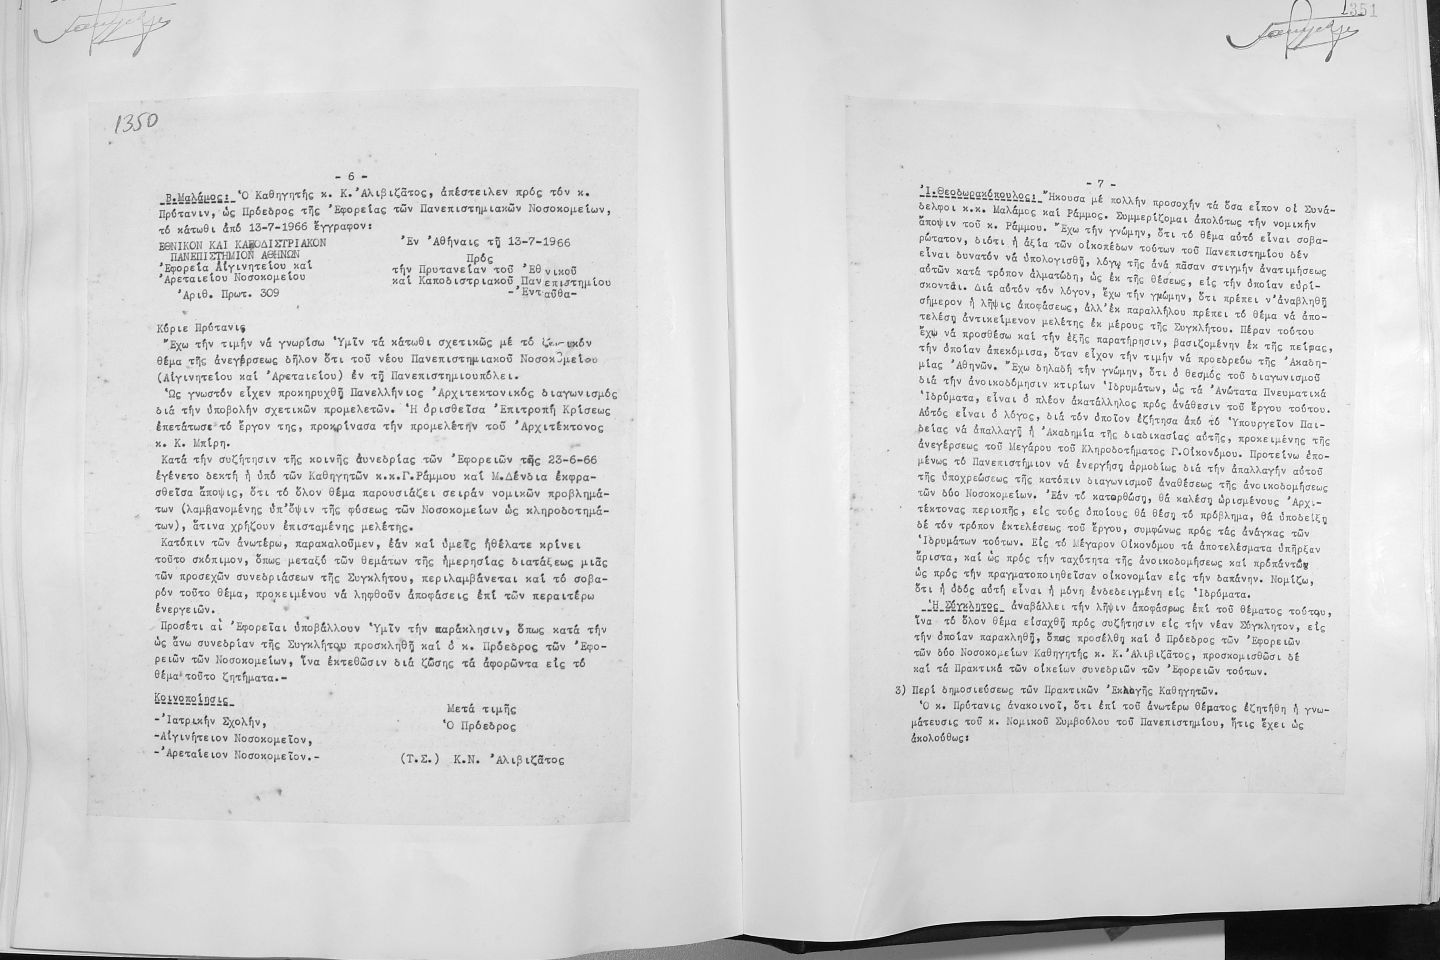 1350
- 6 -
Β.Μαλάμος: Ὁ Καθηγητής κ. Κ.Ἀλιβιζᾶτος, ἀπέστειλεν πρός τόν κ.
Πρύτανιν, ὡς Πρόεδρος τῆς Ἐφορείας τῶν Πανεπιστημιακῶν Νοσοκομείων,
τό κάτωθι ἀπό 13-7-1966 ἔγγραφον:
ΕΘΝΙΚΟΝ ΚΑΙ ΚΑΠΟΔΙΣΤΡΙΑΚΟΝ
ΠΑΝΕΠΙΣΤΗΜΙΟΝ ΑΘΗΝΩΝ
Ἐφορεία Αἰγινητείου καί
Ἀρεταιείου Νοσοκομείου
Ἀριθ. Πρωτ. 309
Ἐν Ἀθήναις τῇ 13-7-1966
Πρός
τήν Πρυτανείαν τοῦ Ἐθνικοῦ
καί Καποδιστριακοῦ Πανεπιστημίου
-Ἐνταῦθα-
Κύριε Πρύτανις
Ἔχω τήν τιμήν νά γνωρίσω Ὑμῖν τά κάτωθι σχετικῶς μέ τό
θέμα τῆς ἀνεγέρσεως δῆλον ὅτι τοῦ νέου Πανεπιστημιακοῦ Νοσοκομείου
(Αἰγινητείου καί Ἀρεταιείου) ἐν τῇ Πανεπιστημιουπόλει.
Ὡς γνωστόν εἶχεν προκηρυχθῆ Πανελλήνιος Ἀρχιτεκτονικός διαγωνισμός
διά τήν ὑποβολήν σχετικῶν προμελετῶν. Ἡ ὁρισθεῖσα Ἐπιτροπή Κρίσεως
ἐπετάτωσε τό ἔργον της, προκρίνασα τήν προμελέτην τοῦ Ἀρχιτέκτονος
κ. Κ. Μπίρη.
Κατά τήν συζήτησιν τῆς κοινῆς συνεδρίας τῶν Ἐφορειῶν τῆς 23-6-66
ἐγένετο δεκτή ἡ ὑπό τῶν Καθηγητῶν κ.κ.Γ.Ράμμου καί Μ.Δένδια ἐκφρα-
σθεῖσα ἄποψις, ὅτι τό ὅλον θέμα παρουσιάζει σειράν νομικῶν προβλημά-
των (λαμβανομένης ὑπ'ὄψιν τῆς φύσεως τῶν Νοσοκομείων ὡς κληροδοτημά-
των), ἅτινα χρήζουν ἐπισταμένης μελέτης.
Κατόπιν τῶν ἀνωτέρω, παρακαλοῦμεν, ἐάν καί ὑμεῖς ἠθέλατε κρίνει
τοῦτο σκόπιμον, ὅπως μεταξύ τῶν θεμάτων τῆς ἡμερησίας διατάξεως μιᾶς
τῶν προσεχῶν συνεδριάσεων τῆς Συγκλήτου, περιλαμβάνεται καί τό σοβα-
ρόν τοῦτο θέμα, προκειμένου νά ληφθοῦν ἀποφάσεις ἐπί τῶν περαιτέρω
ἐνεργειῶν.
Προσέτι αἱ Ἐφορεῖαι ὑποβάλλουν Ὑμῖν τήν παράκλησιν, ὅπως κατά τήν
ὡς ἄνω συνεδρίαν τῆς Συγκλήτου προσκληθῇ καί ὁ κ. Πρόεδρος τῶν Ἐφο-
ρειῶν τῶν Νοσοκομείων, ἵνα ἐκτεθῶσιν διά ζώσης τά ἀφορῶντα εἰς τό
θέμα τοῦτο ζητήματα.-
Κοινοποίησις
-Ἰατρικήν Σχολήν,
-Αἰγινήτειον Νοσοκομεῖον,
-Ἀρεταίειον Νοσοκομεῖον.-
Μετά τιμῆς
Ὁ Πρόεδρος
(Τ.Σ.) Κ.Ν. Ἀλιβιζᾶτος
1351
- 7 -
Ἰ.Θεοδωρακόπουλος: Ἤκουσα μέ πολλήν προσοχήν τά ὅσα εἶπον οἱ Συνά-
δελφοι κ.κ. Μαλάμος καί Ράμμος. Συμμερίζομαι ἀπολύτως τήν νομικήν
ἄποψιν τοῦ κ. Ράμμου. Ἔχω τήν γνώμην, ὅτι τό θέμα αὐτό εἶναι σοβα-
ρώτατον, διότι ἡ ἀξία τῶν οἰκοπέδων τούτων τοῦ Πανεπιστημίου δέν
εἶναι δυνατόν νά ὑπολογισθῇ, λόγῳ τῆς ἀνά πᾶσαν στιγμήν ἀνατιμήσεως
αὐτῶν κατά τρόπον ἁλματώδη, ὡς ἐκ τῆς θέσεως, εἰς τήν ὁποίαν εὑρί-
σκονται. Διά αὐτόν τόν λόγον, ἔχω τήν γνώμην, ὅτι πρέπει ν'ἀναβληθῇ
σήμερον ἡ λῆψις ἀποφάσεως, ἀλλ'ἐκ παραλλήλου πρέπει τό θέμα νά ἀπο-
τελέσῃ ἀντικείμενον μελέτης ἐκ μέρους τῆς Συγκλήτου. Πέραν τούτου
ἔχω νά προσθέσω καί τήν ἑξῆς παρατήρησιν, βασιζομένην ἐκ τῆς πείρας,
τήν ὁποίαν ἀπεκόμισα, ὅταν εἶχον τήν τιμήν νά προεδρεύω τῆς Ἀκαδη-
μίας Ἀθηνῶν. Ἔχω δηλαδή τήν γνώμην, ὅτι ὁ θεσμός τοῦ διαγωνισμοῦ
διά τήν ἀνοικοδόμησιν κτιρίων Ἱδρυμάτων, ὡς τά Ἀνώτατα Πνευματικά
Ἱδρύματα, εἶναι ὁ πλέον ἀκατάλληλος πρός ἀνάθεσιν τοῦ ἔργου τούτου.
Αὐτός εἶναι ὁ λόγος, διά τόν ὁποῖον ἐζήτησα ἀπό τό Ὑπουργεῖον Παι-
δείας νά ἀπαλλαγῇ ἡ Ἀκαδημία τῆς διαδικασίας αὐτῆς, προκειμένης τῆς
ἀνεγέρσεως τοῦ Μεγάρου τοῦ Κληροδοτήματος Γ.Οἰκονόμου. Προτείνω ἑπο-
μένως τό Πανεπιστήμιον νά ἐνεργήσῃ ἁρμοδίως διά τήν ἀπαλλαγήν αὐτοῦ
τῆς ὑποχρεώσεως τῆς κατόπιν διαγωνισμοῦ ἀναθέσεως τῆς ἀνοικοδομήσεως
τῶν δύο Νοσοκομείων. Ἐάν τό κατορθώσῃ, θά καλέσῃ ὡρισμένους Ἀρχι-
τέκτονας περιοπῆς, εἰς τούς ὁποίους θά θέσῃ τό πρόβλημα, θά ὑποδείξῃ
δέ τόν τρόπον ἐκτελέσεως τοῦ ἔργου, συμφώνως πρός τάς ἀνάγκας τῶν
Ἱδρυμάτων τούτων. Εἰς τό Μέγαρον Οἰκονόμου τά ἀποτελέσματα ὑπῆρξαν
ἄριστα, καί ὡς πρός τήν ταχύτητα τῆς ἀνοικοδομήσεως καί πρόπάντων
ὡς πρός τήν πραγματοποιηθεῖσαν οἰκονομίαν εἰς τήν δαπάνην. Νομίζω,
ὅτι ἡ ὁδός αὐτή εἶναι ἡ μόνη ἐνδεδειγμένη εἰς Ἱδρύματα.
Ἡ Σύγκλητος ἀναβάλλει τήν λῆψιν ἀποφάσεως ἐπί τοῦ θέματος τούτου,
ἵνα τό ὅλον θέμα εἰσαχθῇ πρός συζήτησιν εἰς τήν νέαν Σύγκλητον, εἰς
τήν ὁποίαν παρακληθῇ, ὅπως προσέλθῃ καί ὁ Πρόεδρος τῶν Ἐφορειῶν
τῶν δύο Νοσοκομείων Καθηγητής κ. Κ.Ἀλιβιζᾶτος, προσκομισθῶσι δέ
καί τά Πρακτικά τῶν οἰκείων συνεδριῶν τῶν Ἐφορειῶν τούτων.
3) Περί δημοσιεύσεως τῶν Πρακτικῶν Ἐκλογῆς Καθηγητῶν.
Ὁ κ. Πρύτανις ἀνακοινοῖ, ὅτι ἐπί τοῦ ἀνωτέρω θέματος ἐζητήθη ἡ γνω-
μάτευσις τοῦ κ. Νομικοῦ Συμβούλου τοῦ Πανεπιστημίου, ἥτις ἔχει ὡς
ἀκολούθως: